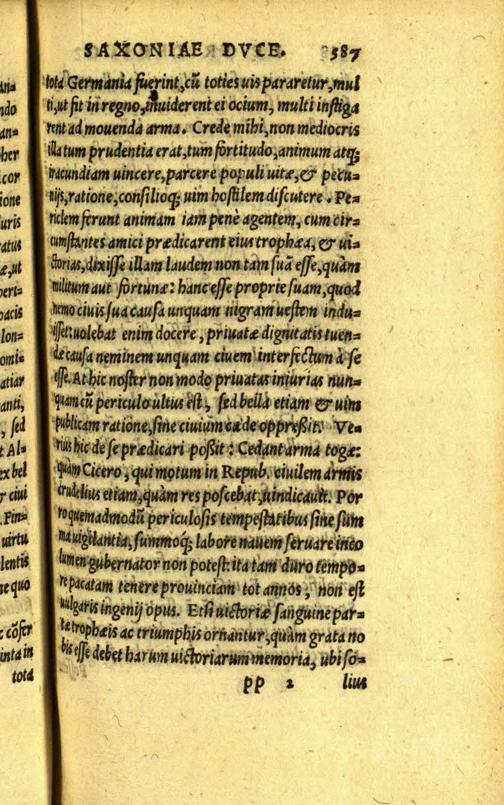 an=
ndo
an=
her
cor
ione
uris
atus
æ,ut
peri=
pacis
lon=
omi=
atiar
anti,
, sed
t Al=
ex bel
r ciui
Fin=
uirtu
lentis
ne quo
c cōser
inta in
tota
SAXONIAE DVCE. 587
tota Germania fuerint,cū toties uis pararetur,mul
ti,ut fit in regno,inuiderent ei ocium, multi instiga
rent ad mouenda arma. Crede mihi,non mediocris
illa tum prudentia erat,tum fortitudo,animum atq;
iracundiam uincere,parcere populi uitæ,& pecu=
nijs,ratione,consilioq; uim hostilem discutere. Pe=
riclem ferunt animam iam penè agentem, cum cir=
cumstantes amici prædicarent eius trophæa, & ui=
ctorias,dixisse illam laudem non tam suā esse,quàm
militum aut fortunæ: hanc esse proprie suam,quod
nemo ciuis sua causa unquam nigram uestem indu=
isset:uolebat enim docere, priuatæ dignitatis tuen=
dæ causa neminem unquam ciuem interfectum à se
esse. At hic noster non modo priuatas iniurias nun=
quam cū periculo ultus est, sed bella etiam & uim
publicam ratione,sine ciuium cæde oppreßit. Ve=
rius hic de se prædicari poßit: Cedant arma togæ:
quàm Cicero, qui motum in Repub. ciuilem armis
crudelius etiam,quàm res poscebat,uindicauit. Por
ro quemadmodū periculosis tempestatibus sine sum
ma uigilantia,summoq; labore nauem seruare inco
lumen gubernator non potest:ita tam duro tempo=
re pacatam tenere prouinciam tot annos, non est
uulgaris ingenij opus. Etsi uictoriæ sanguine par=
tæ trophæis ac triumphis ornantur,quàm grata no
bis esse debet harum uictoriarum memoria, ubi so=
pp 2 lius